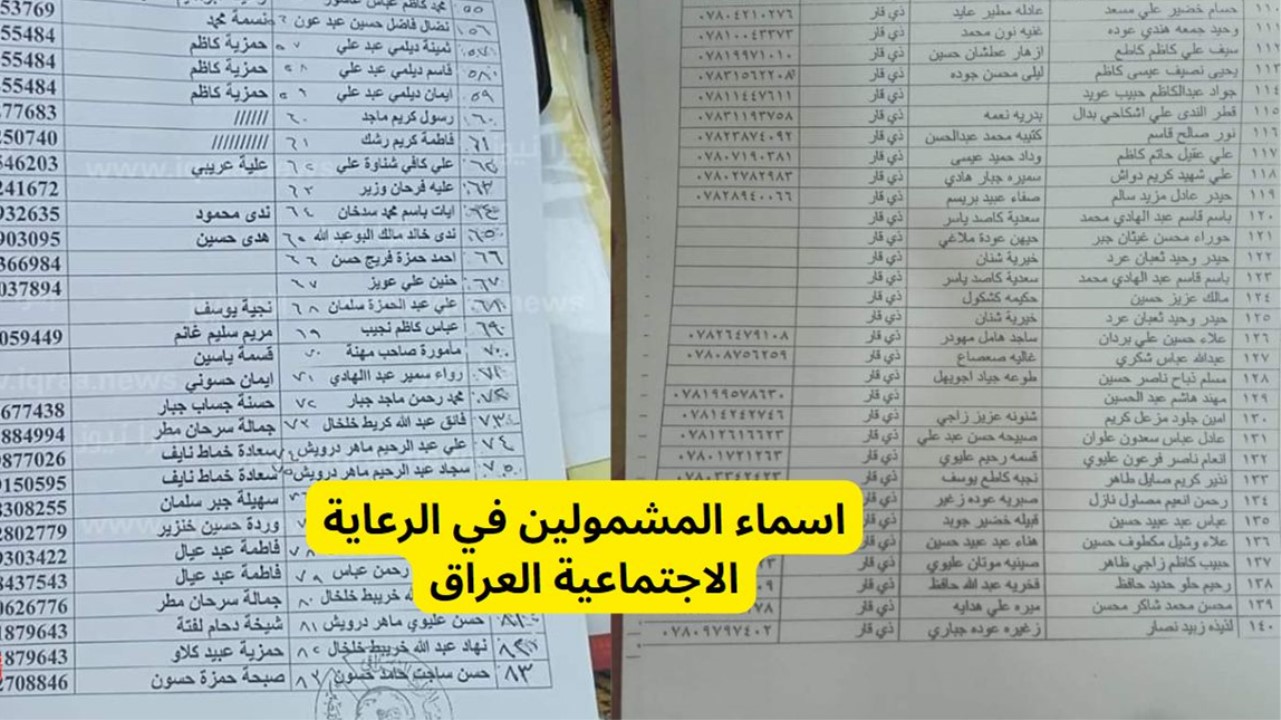 اسماء المشمولين في الرعاية
الاجتماعية العراق
53769
نضال فاضل حسين عبد عون نسمة محمد
ثمينة ديلمي عبد علي حمزية كاظم 55484
قاسم ديلمي عبد علي حمزية كاظم 55484
ايمان ديلمي عبد علي حمزية كاظم 55484
رسول كريم ماجد ////// 77683
فاطمة كريم رشك ////////// 250740
علي كافي شناوة علي علية عريبي 546203
عليه فرحان وزير 241672
ايات باسم محمد سدخان ندى محمود 932635
ندى خالد مالك البوعبد الله هدى حسين 903095
احمد حمزة فريج حسن 366984
حنين علي عويز 037894
علي عبد الحمزة سلمان نجية يوسف
عباس كاظم نجيب مريم سليم غانم 059449
مامورة صاحب مهنة قسمة ياسين
رواء سمير عبد االهادي ايمان حسوني
محمد رحمن ماجد جبار حسنة جساب جبار 677438
فائق عبد الله كريط خلخال جمالة سرحان مطر 884994
علي عبد الرحيم ماهر درويش سعادة خماط نايف 9877026
سجاد عبد الرحيم ماهر درويش سعادة خماط نايف 9150595
سهيلة جبر سلمان 8308255
وردة حسين خنزير 2802779
فاطمة عبد عيال 9303422
رحمن عباس فاطمة عبد عيال 8437543
خريبط خلخال جمالة سرحان مطر 0626776
حسن عليوي ماهر درويش شيخة دحام لفتة 1879643
نهاد عبد الله خريبط خلخال حمزية عبيد كلاو 1879643
حسن ساجت حامد حسون صبحة حمزة حسون 2708846
١١٠ حسام خضير علي مسعد عادله مطير عايد ذي قار ٠٧٨٠٤٢١٠٢٧٦
١١١ وحيد جمعه هندي عوده غنيه نون محمد ذي قار ٠٧٨١٠٠٤٣٣٧٣
سيف علي كاظم كاطع ازهار عطشان حسين ذي قار ٠٧٨١٩٩٧١٠١٠
١١٣ يحيى نصيف عيسى كاظم ليلى محسن جوده ذي قار ٠٧٨٣١٥٦٢٢٠٨
١١٤ جواد عبدالكاظم حبيب عويد ذي قار ٠٧٨١١٤٤٧٦١١
١١٥ قطر الندى علي اشكاحي بدال بدريه نعمه ذي قار ٠٧٨٣١١٩٣٧٥٨
١١٦ نور صالح قاسم كتيبه محمد عبدالحسن ذي قار ٠٧٨٢٣٨٧٤٠٩٢
١١٧ علي عقيل حاتم كاظم وداد حميد عيسى ذي قار ٠٧٨٠٧١٩٠٣٨١
١١٨ علي شهيد كريم دواش سميره جبار هادي ذي قار ٠٧٨٠٢٧٨٢٩٨٣
١١٩ حيدر عادل مزيد سالم صفاء عبيد بريسم ذي قار ٠٧٨٢٨٩٤٠٠٦٦
١٢٠ باسم قاسم عبد الهادي محمد سعدية كاصد ياسر ذي قار
١٢١ حوراء محسن غيثان جبر جيهن عودة ملاغي ذي قار
١٢٢ حيدر وحيد ثعبان عرد خيرية شنان ذي قار
١٢٣ باسم قاسم عبد الهادي محمد سعدية كاصد ياسر ذي قار
١٢٤ مالك عزيز حسين حكيمه كشكول ذي قار
١٢٥ حيدر وحيد ثعبان عرد خيرية شنان ذي قار
١٢٦ علاء حسين علي بردان ساجد هامل مهودر ذي قار ٠٧٨٢٦٤٧٩١٠٨
١٢٧ عبدالله عباس شكري غاليه صعصاع ذي قار ٠٧٨٠٨٧٥٦٢٥٩
١٢٨ مسلم ذباح ناصر حسين طوعه جياد اجويهل ذي قار
١٢٩ مهند هاشم عبد الحسين ذي قار ٠٧٨١٩٩٥٧٨٦٣٠
١٣٠ امين جلود مزعل كريم شنونه عزيز زاجي ذي قار ٠٧٨١٤٢٤٢٧٤٦
١٣١ عادل عباس سعدون علوان صبيحه حسن عبد علي ذي قار ٠٧٨١٢٦١٦٦٢٣
١٣٢ انعام ناصر فرعون عليوي قسمه رحيم عليوي ذي قار ٠٧٨٠١٧٢١٢٦٣
١٣٣ نذير كريم صايل طاهر نجبه كاطع يوسف ذي قار ٠٧٨٠٣٣٤٢٤٢٣
١٣٤ رحمن انعيم مصاول نازل صبريه عوده زغير ذي قار
١٣٥ عباس عبد عبيد حسين فيله خضير جويد ذي قار
١٣٦ علاء وشيل مكطوف حسين هناء عبد عبيد حسين ذي قار
١٣٧ حبيب كاظم زاجي ظاهر صينيه مونان عليوي ذي قار
١٣٨ رحيم حلو حديد حافظ فخريه عبد الله حافظ ذي قار
١٣٩ محسن محمد شاكر محسن ميره علي هدايه ذي قار
١٤٠ لذيذه زبيد نصار زغيره عوده جباري ذي قار ٠٧٨٠٩٧٩٧٤٠٢